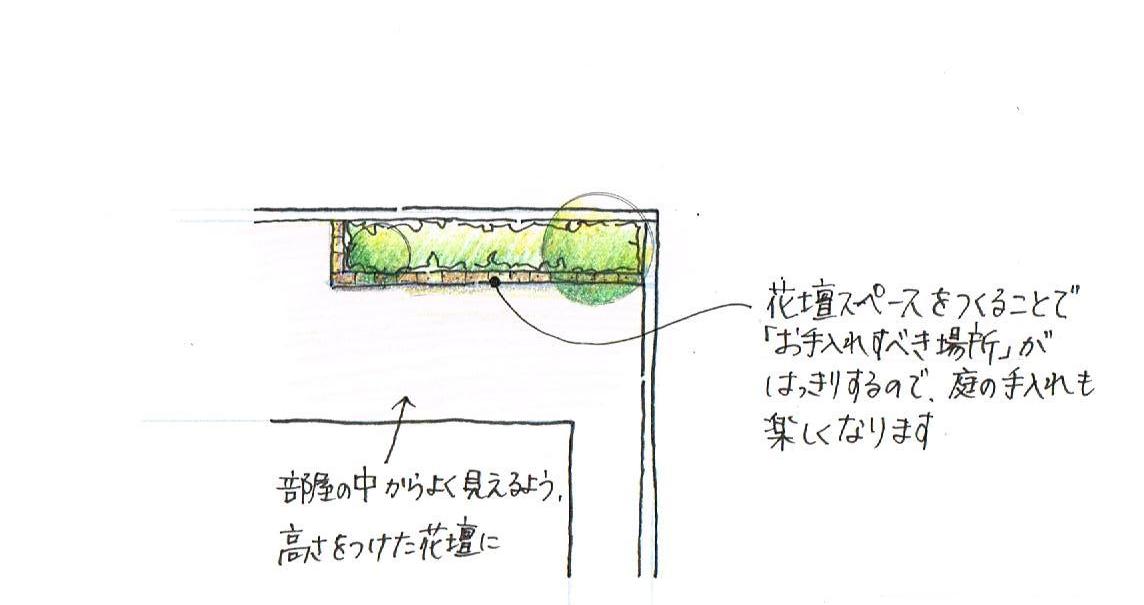 花壇スペースをつくることで
「お手入れすべき場所」が
はっきりするので、庭の手入れも
楽しくなります
部屋の中からよく見えるよう、
高さをつけた花壇に